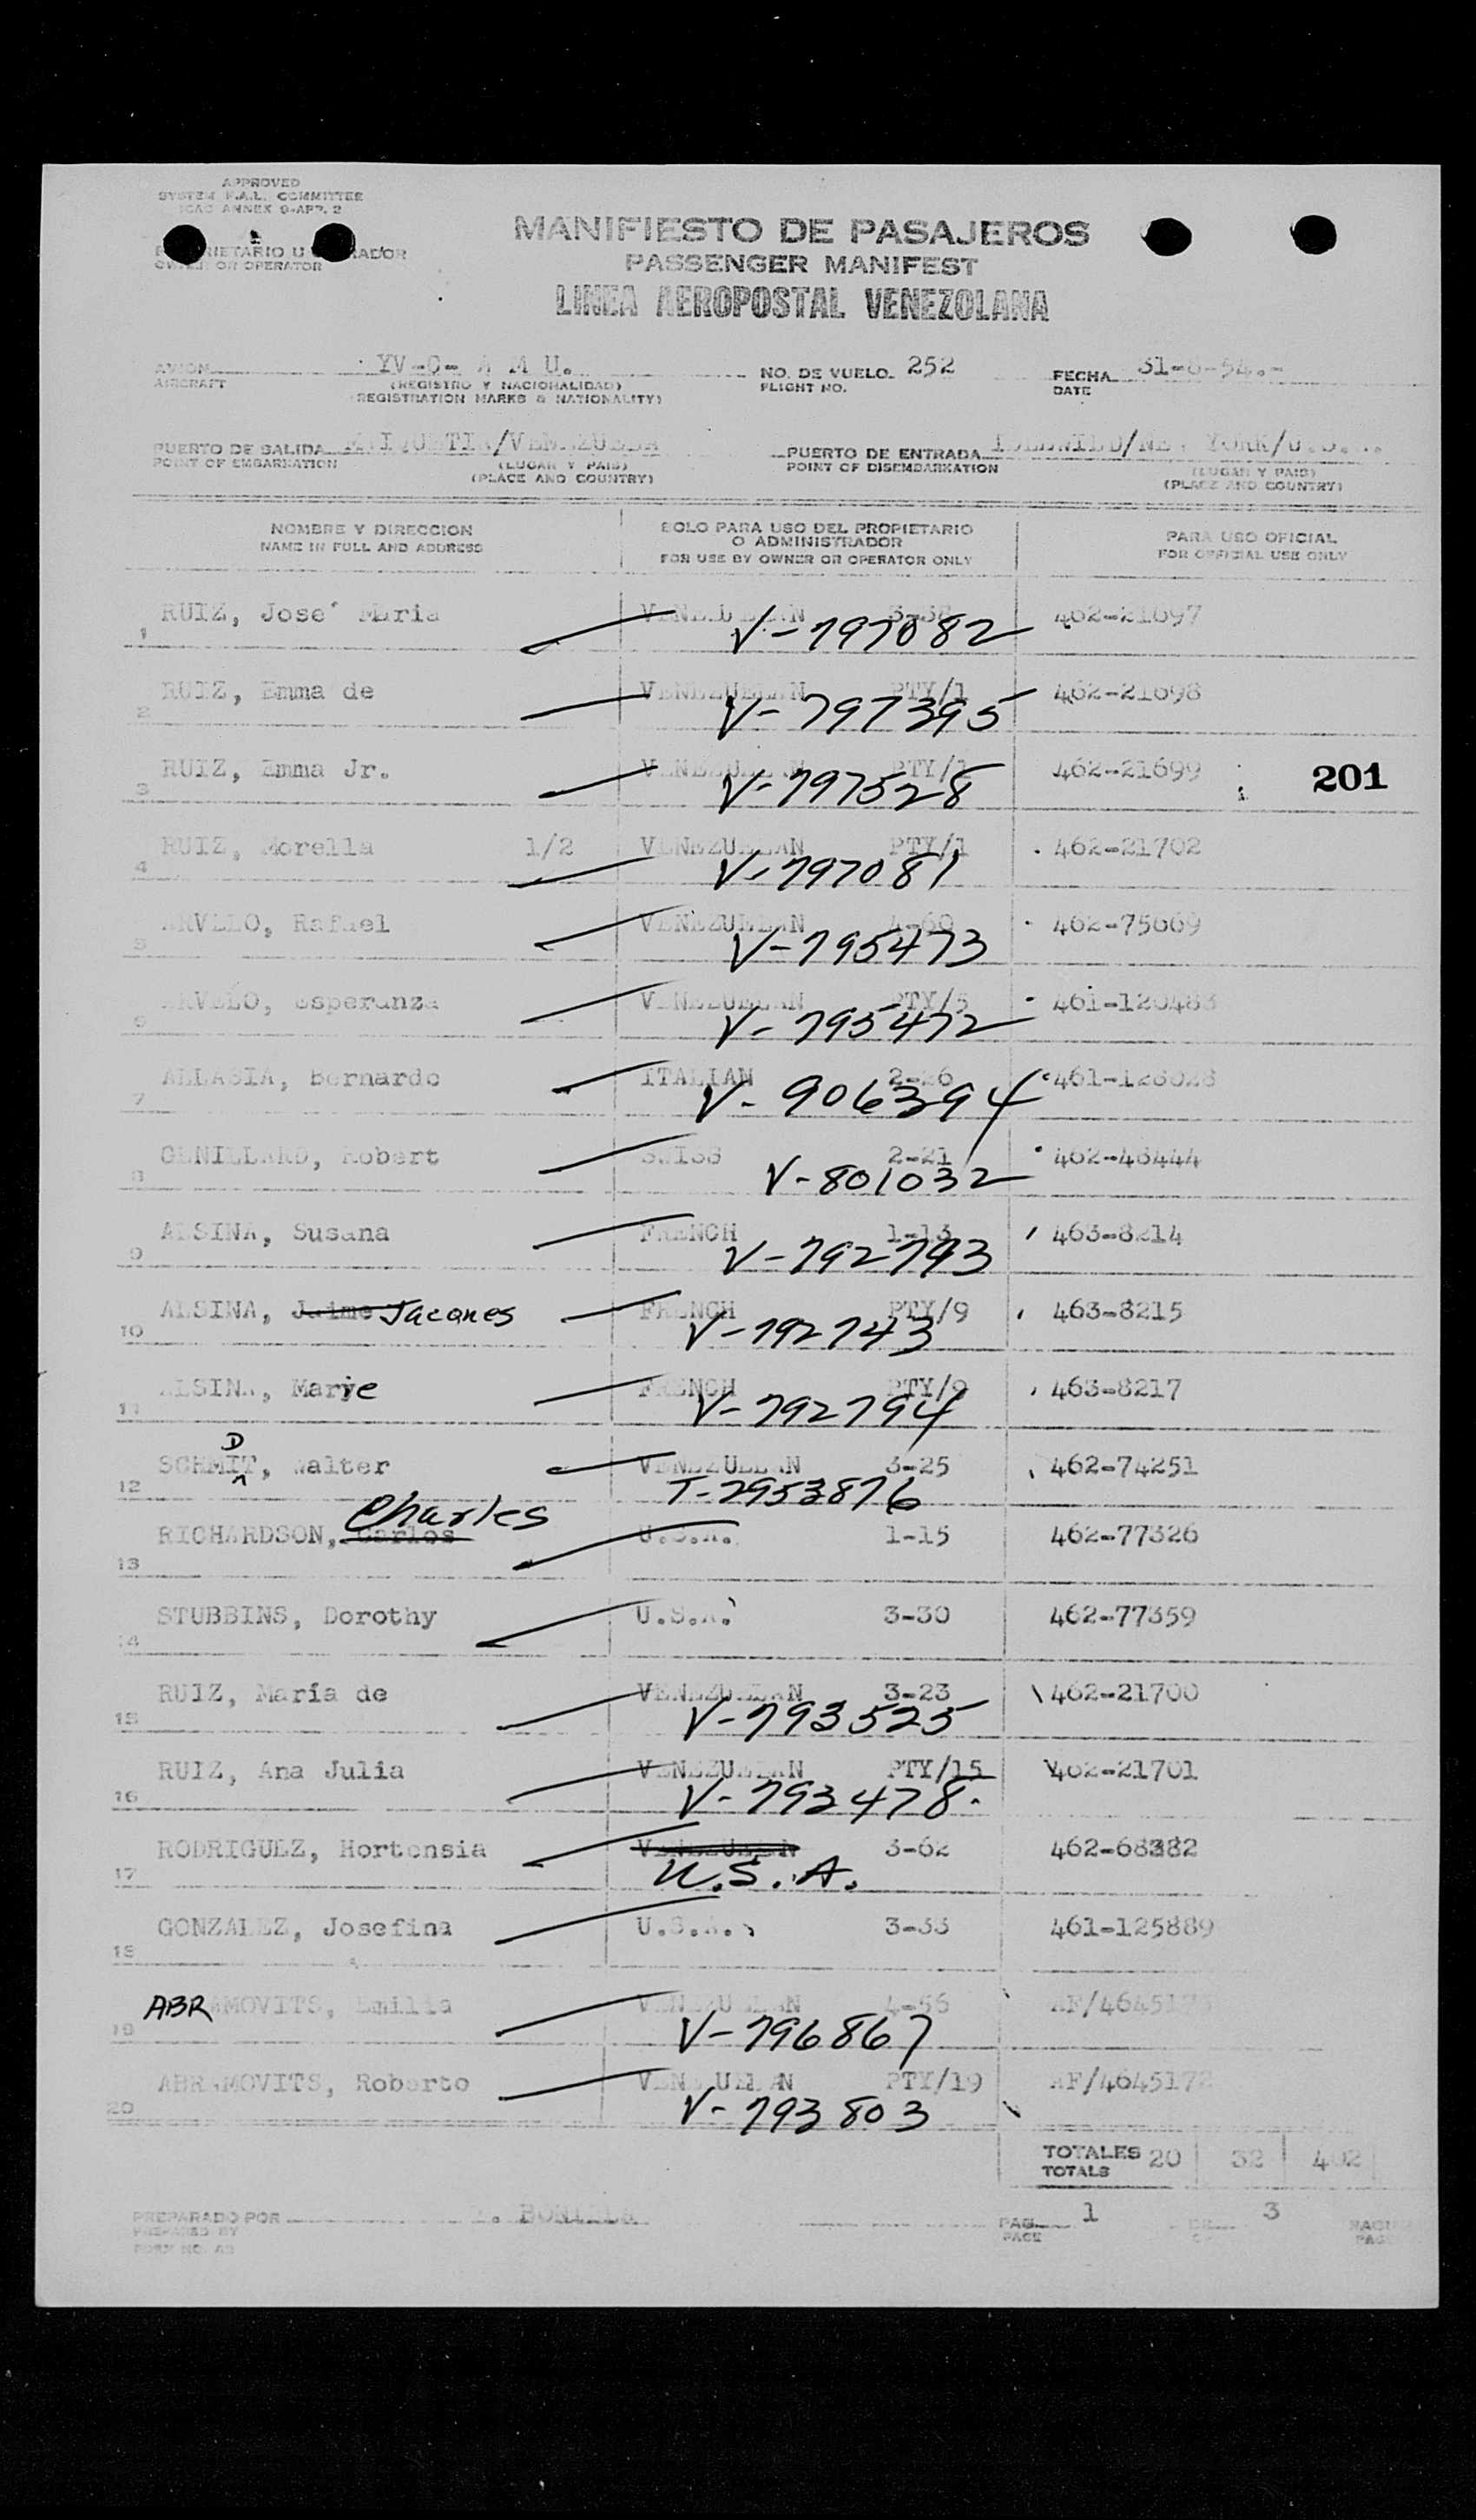 APPROVED
SYSTEM F.A.L. COMMITTEE
ICAO ANNEX 9-APP. 2
OWNER OR OPERATOR
MANIFIESTO DE PASAJEROS
PASSENGER MANIFEST
LINEA AEROPOSTAL VENEZOLANA
AVION YV-C- A M U. NO. DE VUELO 252 FECHA 31-8-54.-
AIRCRAFT (REGISTRO Y NACIONALIDAD) FLIGHT NO. DATE
(REGISTRATION MARKS & NATIONALITY)
PUERTO DE SALIDA MAIQUETIA/VENEZUELA PUERTO DE ENTRADA IDLEWILD/NEW YORK/U.S.A.
POINT OF EMBARKATION (LUGAR Y PAIS) POINT OF DISEMBARKATION (LUGAR Y PAIS)
(PLACE AND COUNTRY) (PLACE AND COUNTRY)
NOMBRE Y DIRECCION SOLO PARA USO DEL PROPIETARIO O ADMINISTRADOR PARA USO OFICIAL
NAME IN FULL AND ADDRESS FOR USE BY OWNER OR OPERATOR ONLY FOR OFFICIAL USE ONLY
1 RUIZ, José Maria VENEZUELAN 462-21697
V-797082
2 RUIZ, Emma de VENEZUELAN PTY/1 462-21698
V-797395
3 RUIZ, Emma Jr. VENEZUELAN PTY/1 462-21699 201
V-797528
4 RUIZ, Morella 1/2 VENEZUELAN PTY/1 462-21702
V-797081
5 ARVELO, Rafael VENEZUELAN 4-60 462-75669
V-795473
6 ARVELO, Esperanza VENEZUELAN PTY/5 461-120483
V-795472
7 ALLASIA, Bernardo ITALIAN 2-26
V-906394
8 GENILLARD, Robert SWISS 2-21 462-46444
V-801032
9 ALSINA, Susana FRENCH 1-13 463-8214
V-792793
10 ALSINA, Jaime Jacques FRENCH PTY/9 463-8215
V-792743
11 ALSINA, Marie FRENCH PTY/9 463-8217
V-792794
12 SCHMIDT, Walter VENEZUELAN 3-25 462-74251
T-2953876
Charles
13 RICHARDSON, Carlos U.S.A. 1-15 462-77326
14 STUBBINS, Dorothy U.S.A. 3-30 462-77359
15 RUIZ, María de VENEZUELAN 3-23 462-21700
V-793525
16 RUIZ, Ana Julia VENEZUELAN PTY/15 462-21701
V-793478.
17 RODRIGUEZ, Hortensia VENEZUELAN 3-62 462-68382
U.S.A.
18 GONZALEZ, Josefina U.S.A. 3-33 461-125889
19 ABRAMOVITS, Emilia VENEZUELAN 4-56
V-796867
20 ABRAMOVITS, Roberto VENEZUELAN PTY/19 AF/4645172
V-793803
TOTALES 20 32 402
TOTALS
PREPARADO POR BONILLA PAG. 1 DE 3
PREPARED BY PAGE
FORM NO.